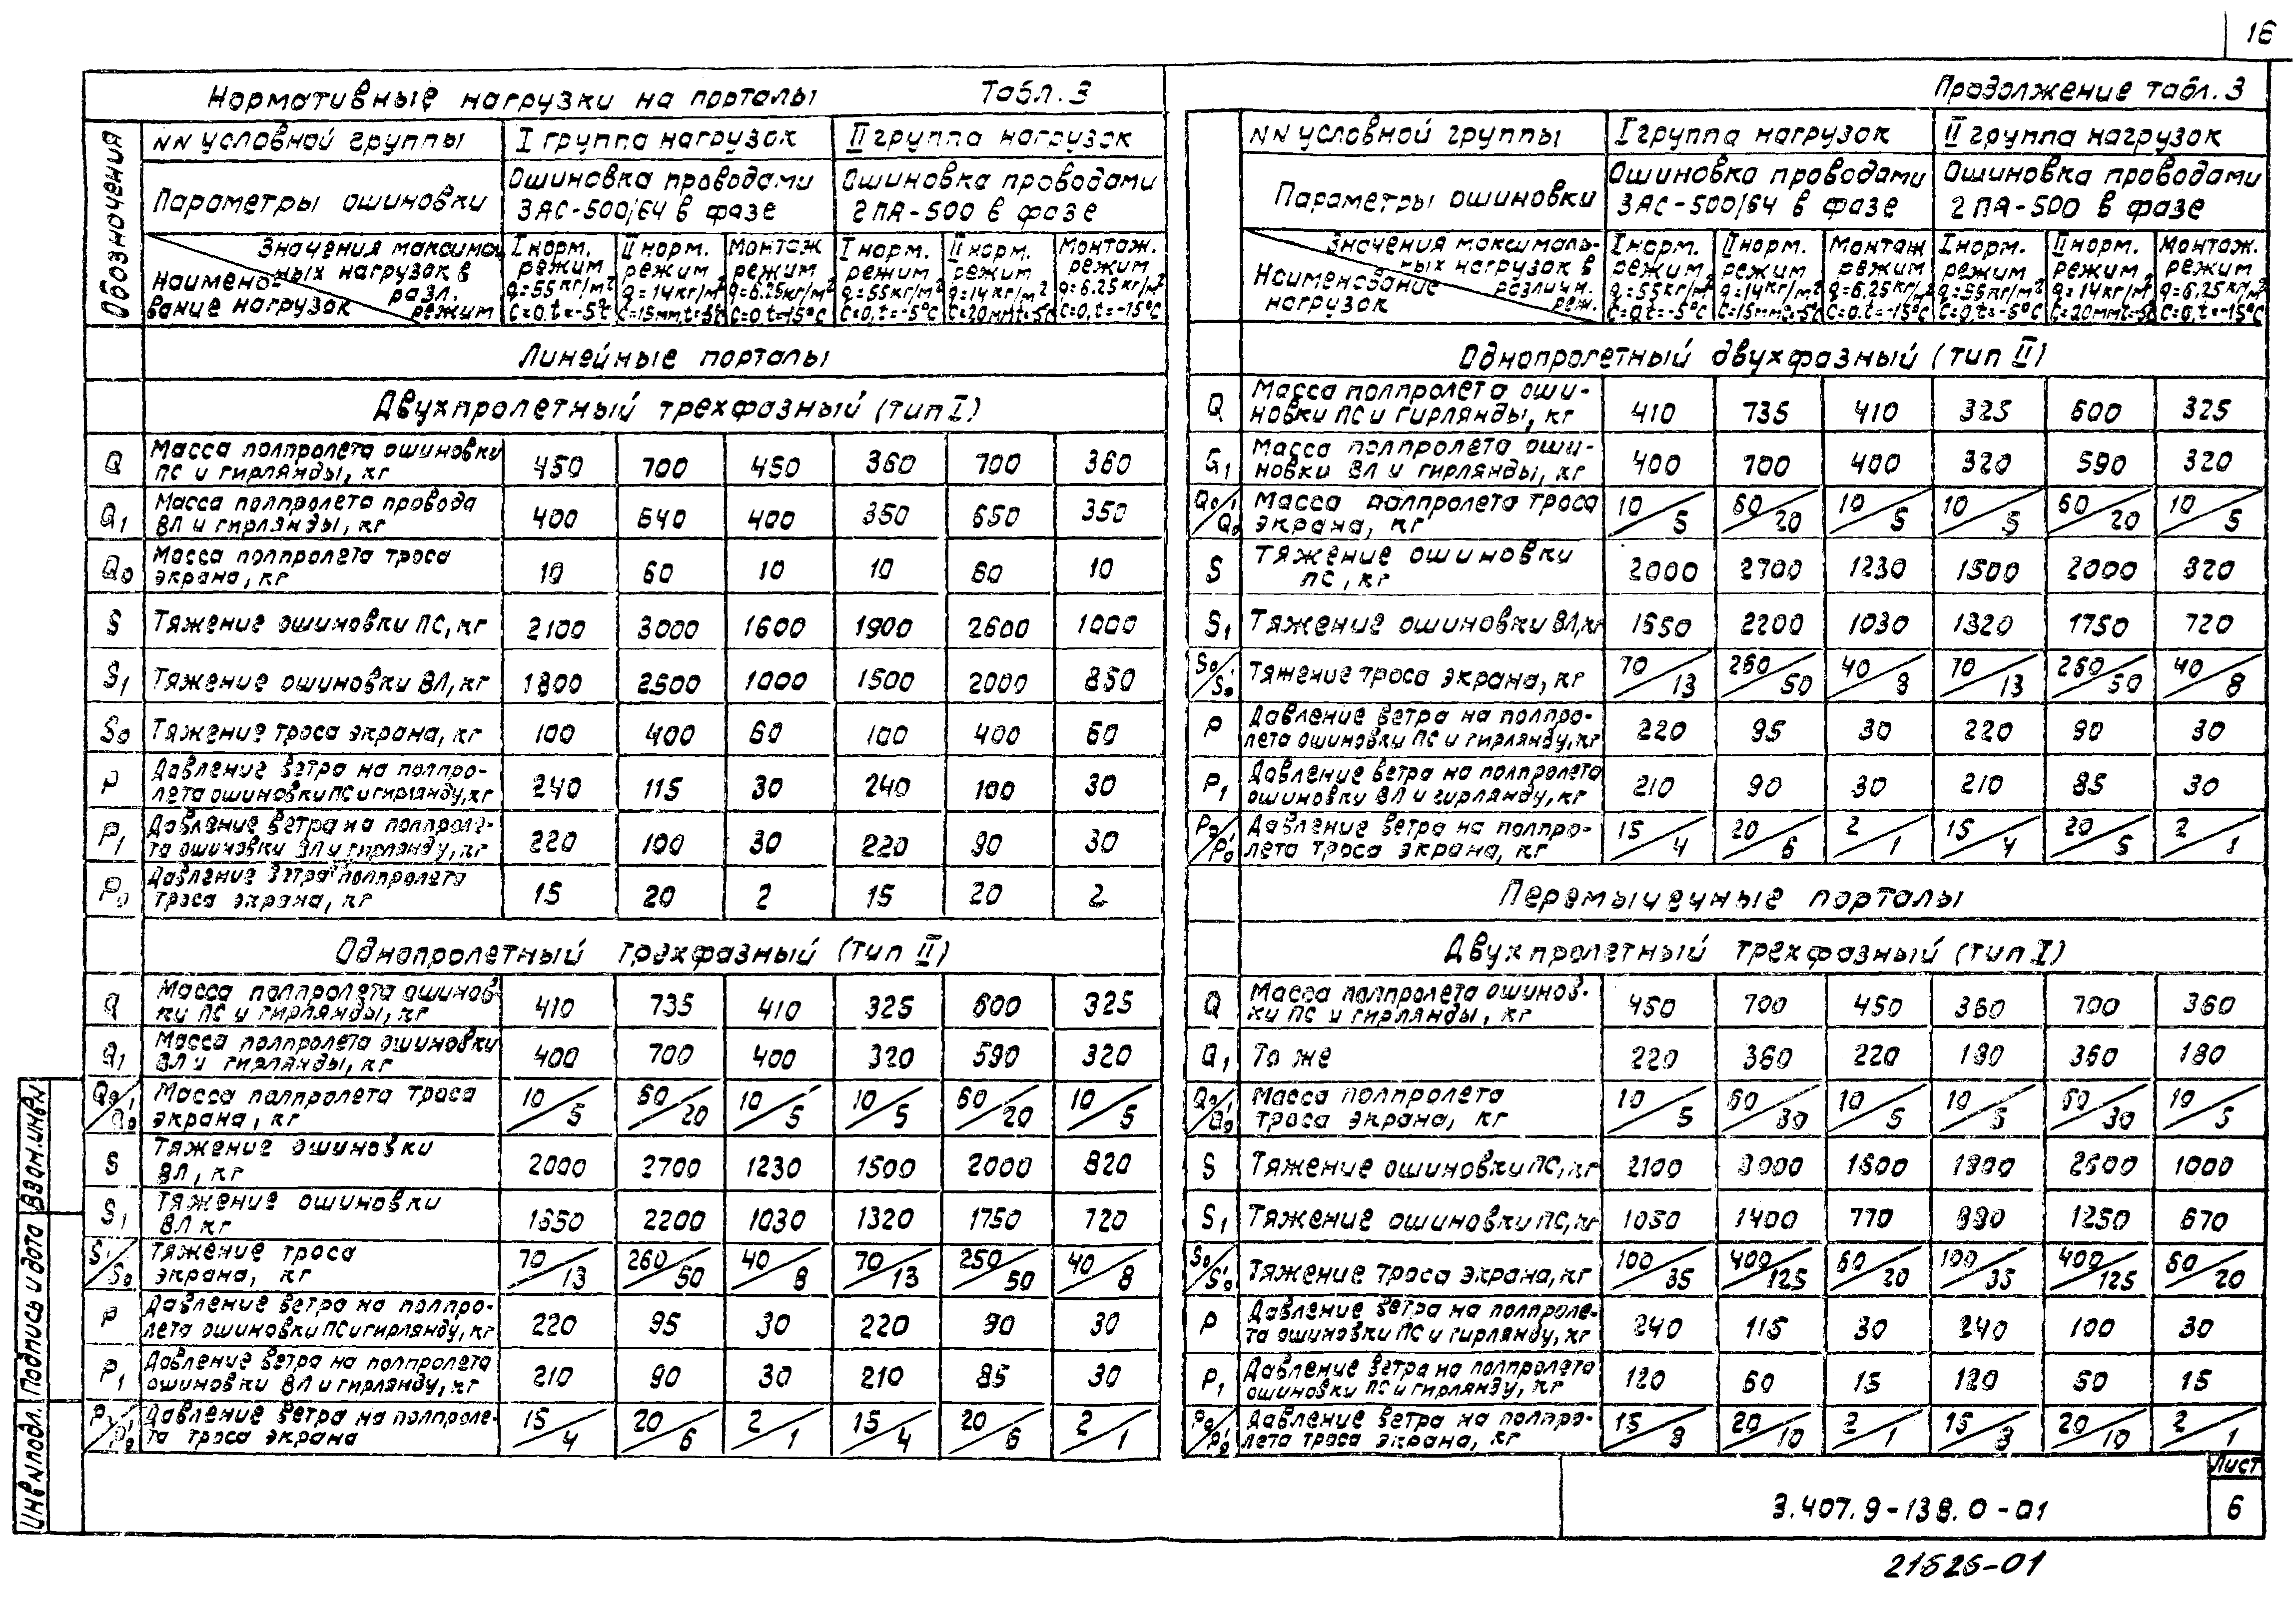 16
Нормативные нагрузки на порталы Табл. 3
Обозначения
NN условной группы I группа нагрузок II группа нагрузок
Параметры ошиновки Ошиновка проводами 3АС-500/64 в фазе Ошиновка проводами 2ПА-500 в фазе
Значения максимальных нагрузок в разл. режим
Наименование нагрузок
I норм. режим q=55кг/м² C=0, t=-5°C
II норм. режим q=14кг/м² C=15мм, t=-5°C
Монтаж режим q=6.25кг/м² C=0, t=-15°C
I норм. режим q=55кг/м² C=0, t=-5°C
II норм. режим q=14кг/м² C=20мм t=-5°C
Монтаж. режим q=6.25кг/м² C=0, t=-15°C
Линейные порталы
Двухпролетный трехфазный (тип I)
Q Масса полпролета ошиновки ПС и гирлянды, кг 450 700 450 360 700 360
Q1 Масса полпролета провода ВЛ и гирлянды, кг 400 640 400 350 650 350
Q0 Масса полпролета троса экрана, кг 10 60 10 10 60 10
S Тяжение ошиновки ПС, кг 2100 3000 1600 1900 2600 1000
S1 Тяжение ошиновки ВЛ, кг 1800 2500 1000 1500 2000 850
S0 Тяжение троса экрана, кг 100 400 60 100 400 60
P Давление ветра на полпролета ошиновки ПС и гирлянду, кг 240 115 30 240 100 30
P1 Давление ветра на полпролета ошиновки ВЛ и гирлянду, кг 220 100 30 220 90 30
P0 Давление ветра полпролета троса экрана, кг 15 20 2 15 20 2
Однопролетный трехфазный (тип II)
Q Масса полпролета ошиновки ПС и гирлянды, кг 410 735 410 325 600 325
Q1 Масса полпролета ошиновки ВЛ и гирлянды, кг 400 700 400 320 590 320
Q0/Q0' Масса полпролета троса экрана, кг 10/5 60/20 10/5 10/5 60/20 10/5
S Тяжение ошиновки ВЛ, кг 2000 2700 1230 1500 2000 820
S1 Тяжение ошиновки ВЛ кг 1650 2200 1030 1320 1750 720
S0/S0' Тяжение троса экрана, кг 70/13 260/50 40/8 70/13 250/50 40/8
P Давление ветра на полпролета ошиновки ПС и гирлянду, кг 220 95 30 220 90 30
P1 Давление ветра на полпролета ошиновки ВЛ и гирлянду, кг 210 90 30 210 85 30
P0/P0' Давление ветра на полпролета троса экрана 15/4 20/6 2/1 15/4 20/6 2/1
Продолжение табл. 3
NN условной группы I группа нагрузок II группа нагрузок
Параметры ошиновки Ошиновка проводами 3АС-500/64 в фазе Ошиновка проводами 2ПА-500 в фазе
Значения максимальных нагрузок в различн. реж.
Наименование нагрузок
I норм. режим q=55кг/м² C=0 t=-5°C
II норм. режим q=14кг/м² C=15мм t=-5°C
Монтаж режим q=6,25кг/м² C=0, t=-15°C
I норм. режим q=55кг/м² C=0, t=-5°C
II норм. режим, q=14кг/м² C=20мм t=-5°C
Монтаж. режим q=6,25кг/м² C=0, t=-15°C
Однопролетный двухфазный (тип II)
Q Масса полпролета ошиновки ПС и гирлянды, кг 410 735 410 325 600 325
G1 Масса полпролета ошиновки ВЛ и гирлянды, кг 400 700 400 320 590 320
Q0/Q0' Масса полпролета троса экрана, кг 10/5 60/20 10/5 10/5 60/20 10/5
S Тяжение ошиновки ПС, кг 2000 2700 1230 1500 2000 820
S1 Тяжение ошиновки ВЛ, кг 1650 2200 1030 1320 1750 720
S0/S0' Тяжение троса экрана, кг 70/13 260/50 40/8 70/13 260/50 40/8
P Давление ветра на полпролета ошиновки ПС и гирлянду, кг 220 95 30 220 90 30
P1 Давление ветра на полпролета ошиновки ВЛ и гирлянду, кг 210 90 30 210 85 30
P0/P0' Давление ветра на полпролета троса экрана, кг 15/4 20/6 2/1 15/4 20/5 2/1
Перемычечные порталы
Двухпролетный трехфазный (тип I)
Q Масса полпролета ошиновки ПС и гирлянды, кг 450 700 450 360 700 360
Q1 То же 220 360 220 180 360 180
Q0/Q0' Масса полпролета троса экрана, кг 10/5 60/30 10/5 10/5 60/30 10/5
S Тяжение ошиновки ПС, кг 2100 3000 1600 1900 2600 1000
S1 Тяжение ошиновки ПС, кг 1050 1400 770 890 1250 670
S0/S0' Тяжение троса экрана, кг 100/35 400/125 60/20 100/35 400/125 60/20
P Давление ветра на полпролета ошиновки ПС и гирлянду, кг 240 115 30 240 100 30
P1 Давление ветра на полпролета ошиновки ПС и гирлянду, кг 120 60 15 120 50 15
P0/P0' Давление ветра на полпролета троса экрана, кг 15/8 20/10 2/1 15/8 20/10 2/1
Инв N подл. Подпись и дата Взам.инв N
3.407.9-138.0-01
Лист
6
21626-01